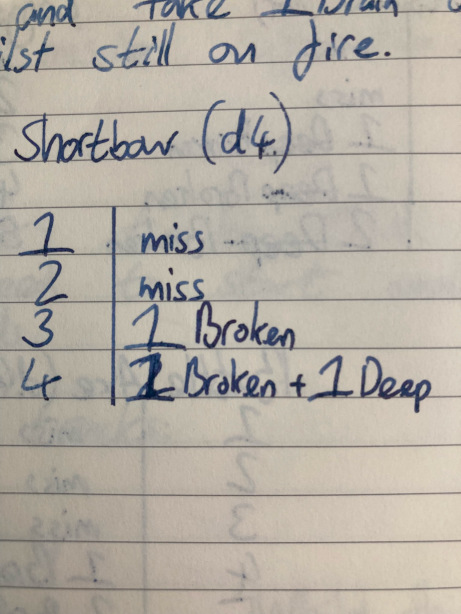 and take 1 Drain
ilst still on fire.
Shortbow (d4)
1 miss
2 miss
3 1 Broken
4 1 Broken + 1 Deep